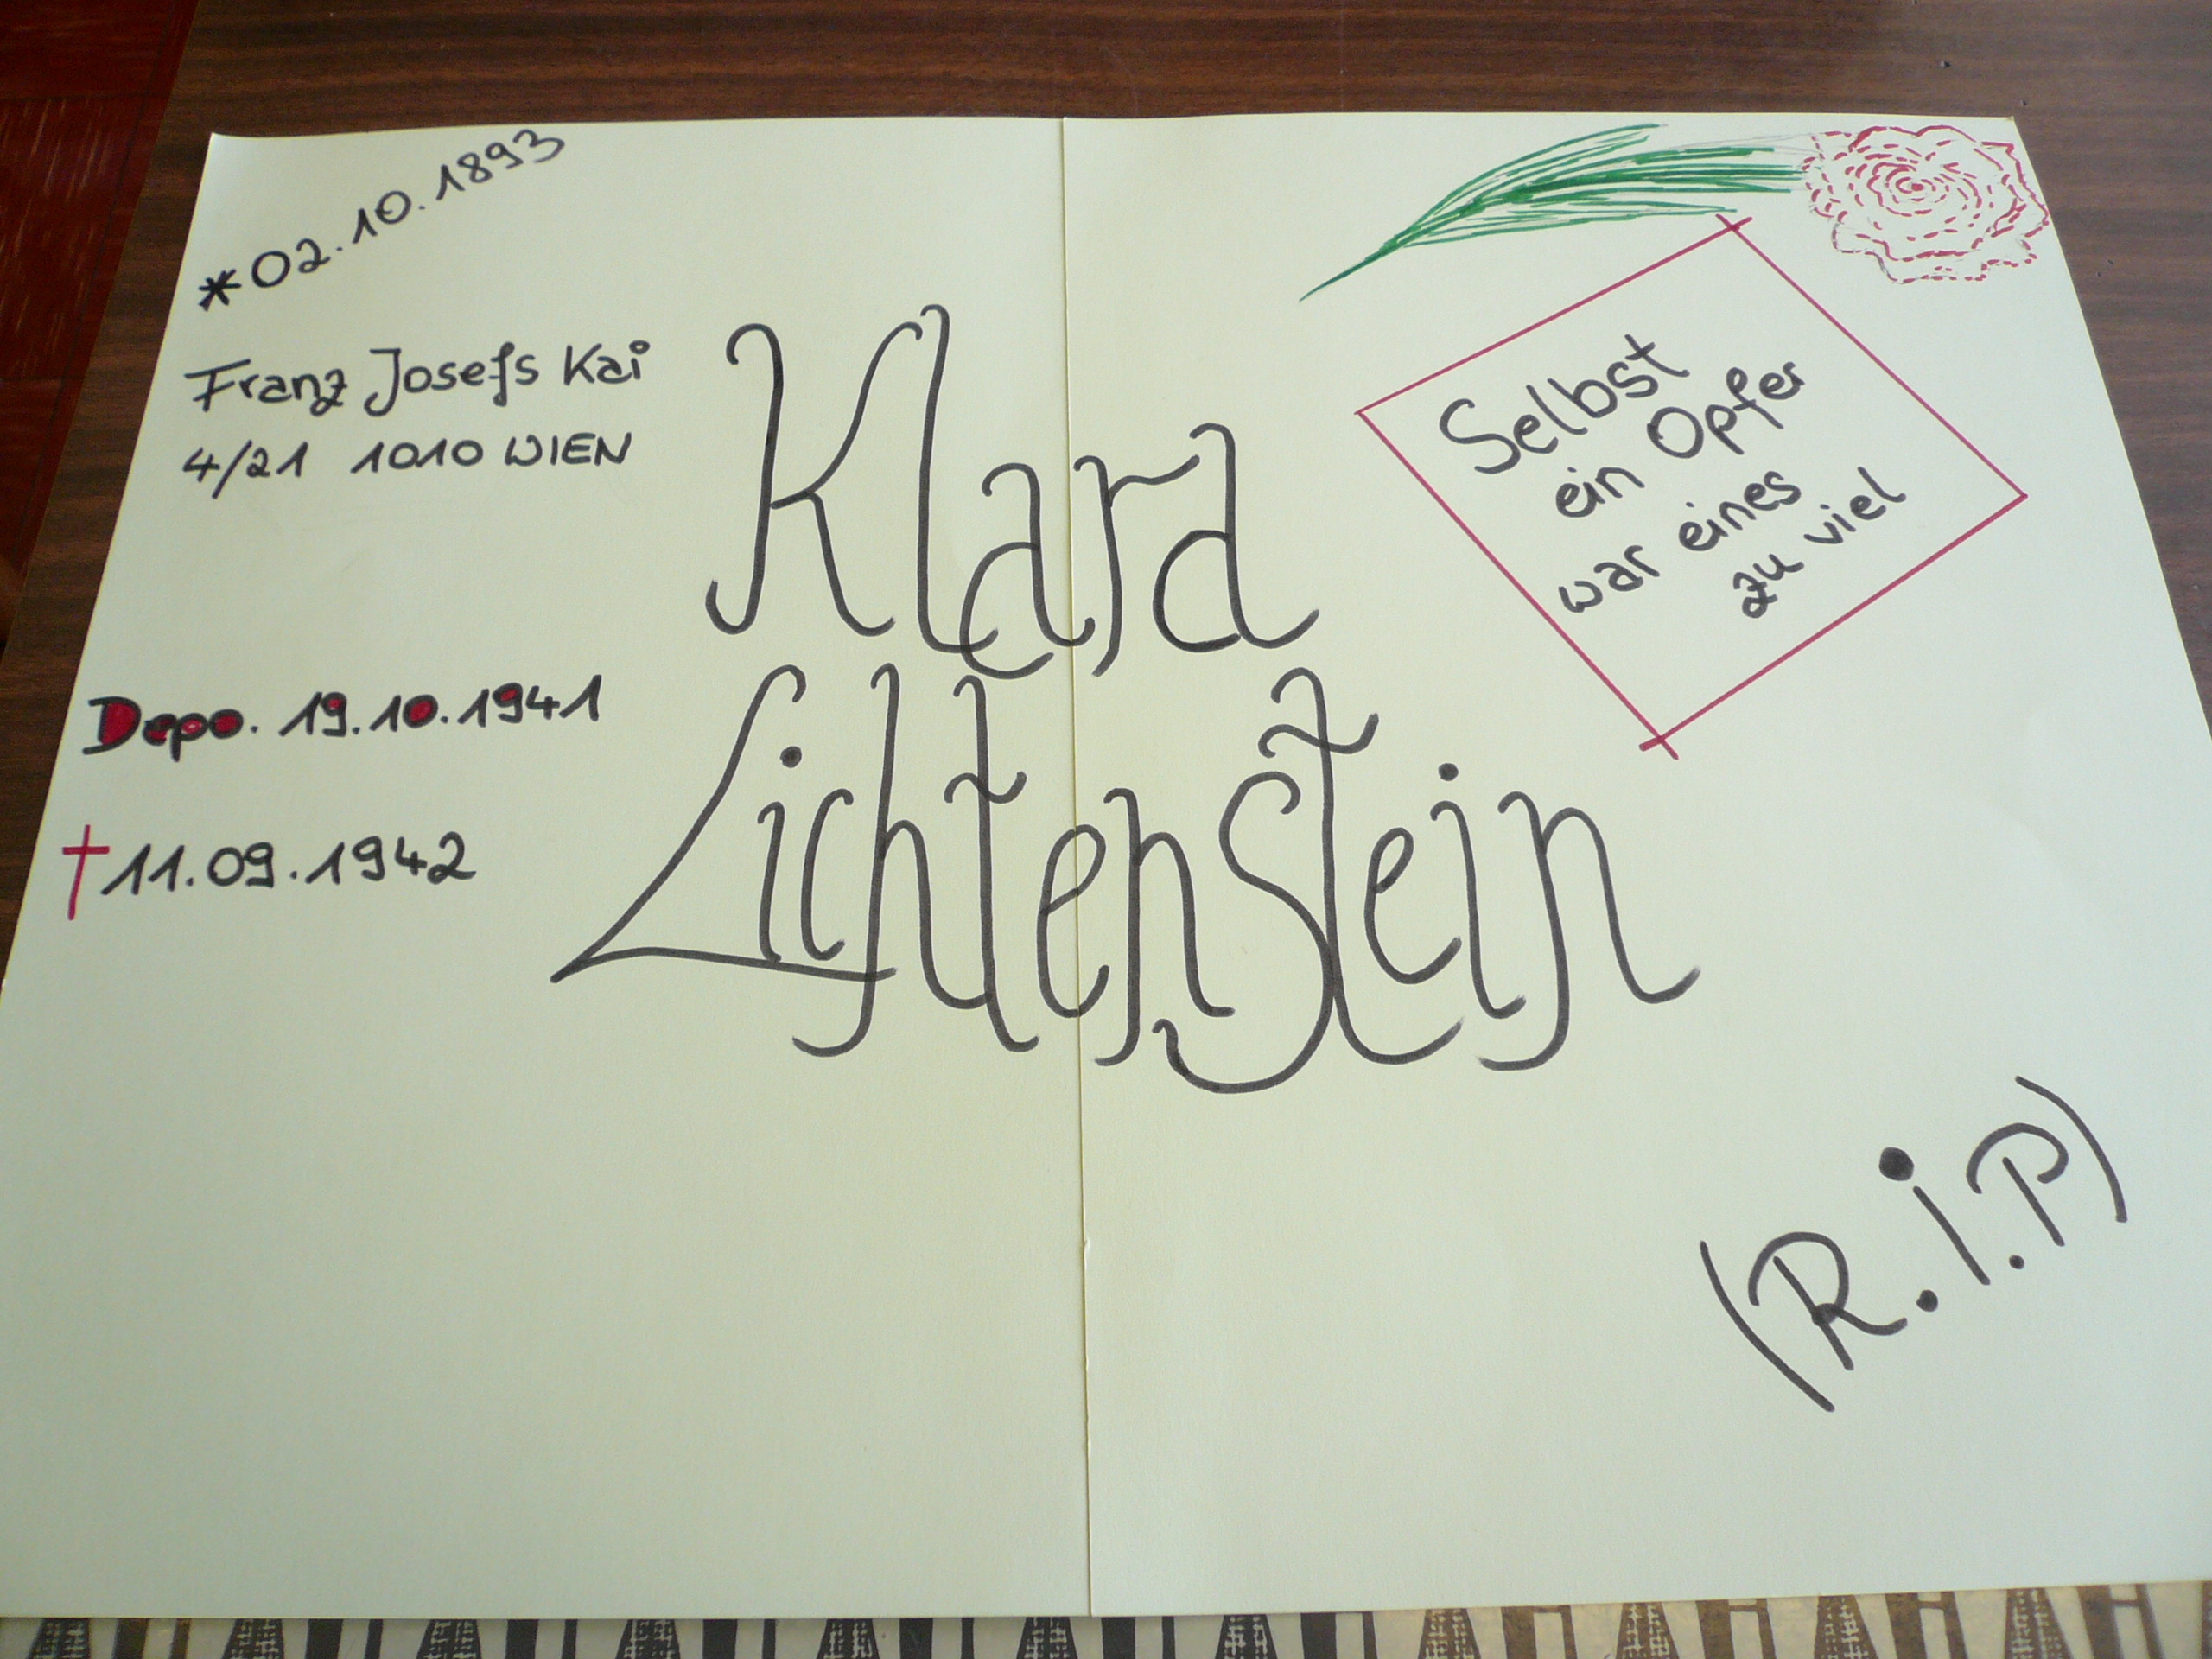 *02.10.1893
Franz Josefs Kai
4/21 1010 WIEN
Depo. 19.10.1941
†11.09.1942
Klara
Lichtenstein
Selbst
ein Opfer
war eines
zu viel
(R.i.P)